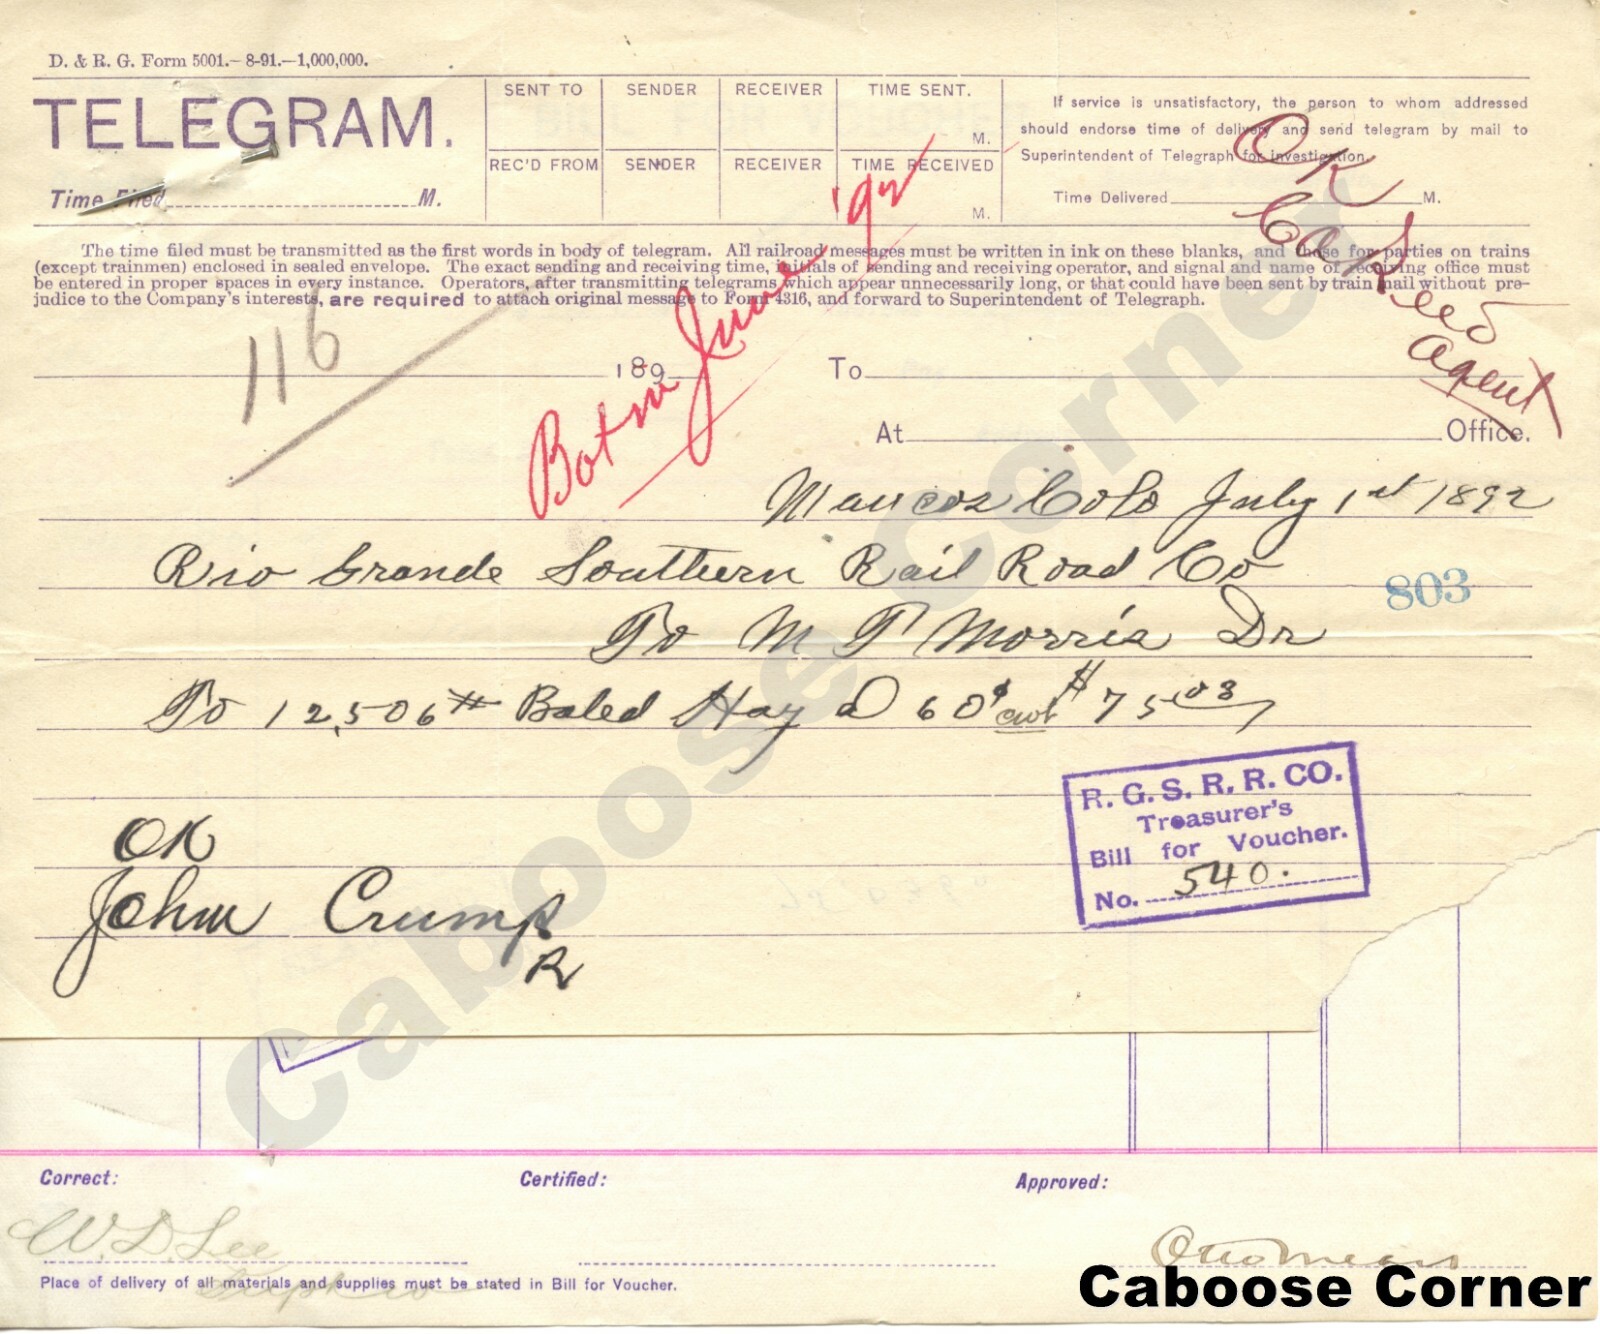 D. & R. G. Form 5001.—8-91.—1,000,000.
TELEGRAM.
Time Filed M.
SENT TO SENDER RECEIVER TIME SENT. M.
REC'D FROM SENDER RECEIVER TIME RECEIVED M.
If service is unsatisfactory, the person to whom addressed
should endorse time of delivery and send telegram by mail to
Superintendent of Telegraph for investigation.
Time Delivered M.
OK
The time filed must be transmitted as the first words in body of telegram. All railroad messages must be written in ink on these blanks, and those for parties on trains
(except trainmen) enclosed in sealed envelope. The exact sending and receiving time, initials of sending and receiving operator, and signal and name of receiving office must
be entered in proper spaces in every instance. Operators, after transmitting telegram, which appear unnecessarily long, or that could have been sent by train mail without pre-
judice to the Company's interests, are required to attach original message to Form 4316, and forward to Superintendent of Telegraph.
Agent
116
Bot in June '92
189 To
At Office.
Mancos Colo July 1st 1892
Rio Grande Southern Rail Road Co
803
To M T Morris Dr
To 12,506# Baled Hay @ 60¢ cwt $75.03
R. G. S. R. R. CO.
Treasurer's
Bill for Voucher.
No. 540.
OK
John Crump
R
Correct: Certified: Approved:
W. D. Lee
Otto Mears
Place of delivery of all materials and supplies must be stated in Bill for Voucher.
Caboose Corner
Caboose Corner